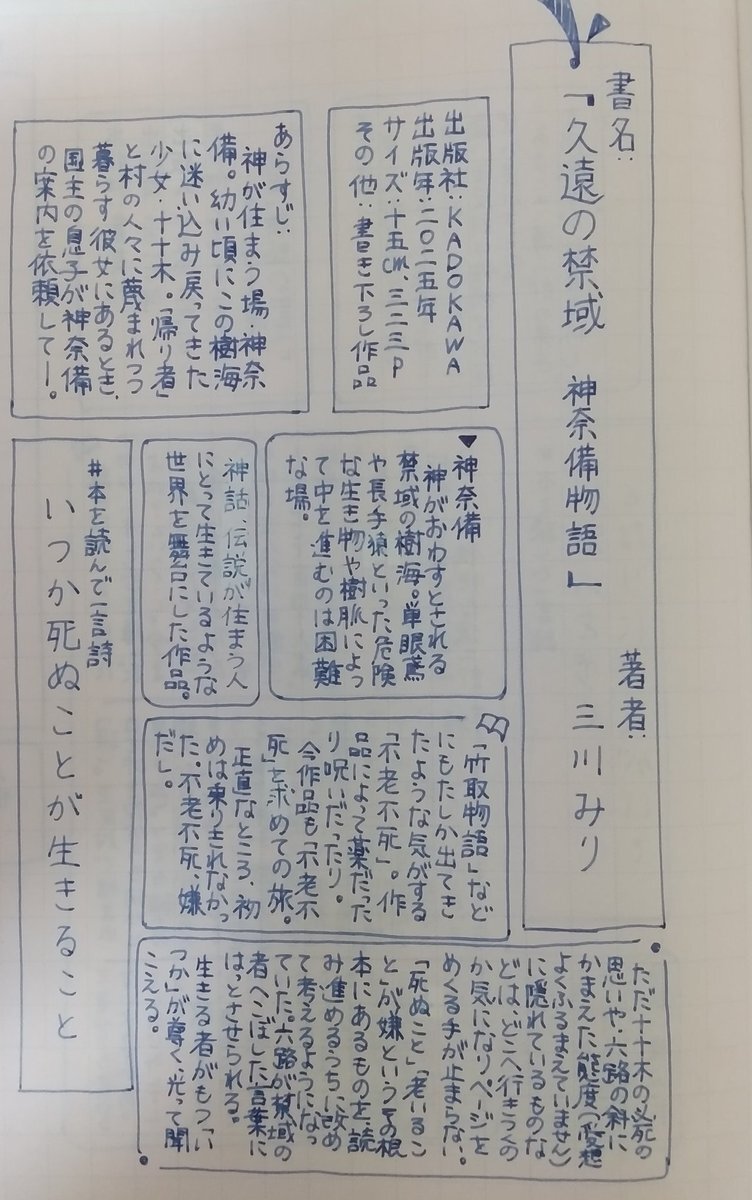 書名：
「久遠の禁域　神奈備物語」
著者：
三川みり
出版社：KADOKAWA
出版年：二〇二五年
サイズ：十五cm、三二三P
その他：書き下ろし作品
あらすじ：
神が住まう場・神奈
備。幼い頃にこの樹海
に迷い込み戻ってきた
少女・十十木。「帰り者」
と村の人々に蔑まれつつ
暮らす彼女にあるとき、
国主の息子が神奈備
の案内を依頼してー。
▼神奈備
神がおわすとされる
禁域の樹海。単眼鳶
や長手猿といった危険
な生き物や樹脈によっ
て中を進むのは困難
な場。
神話、伝説が住まう人
にとって生きているような
世界を舞台にした作品。
#本を読んで一言詩
いつか死ぬことが生きること
「竹取物語」など
にもたしか出てき
たような気がする
「不老不死」。作
品によって薬だった
り呪いだったり。
今作品も「不老不
死」を求めての旅。
正直なところ、初
めは乗りきれなかっ
た。不老不死、嫌
だし。
ただ十十木の必死の
思いや、六路の斜に
かまえた態度（愛想
よくふるまえていません）
に隠れているものな
どは、どこへ行きつくの
か気になりページを
めくる手が止まらない。
「死ぬこと」「老いるこ
と」が嫌というその根
本にあるものを、読
み進めるうちに改め
て考えるようになっ
ていた。六路が禁域の
者へこぼした言葉に
はっとさせられる。
生きる者がもつ「い
つか」が尊く、光って聞
こえる。